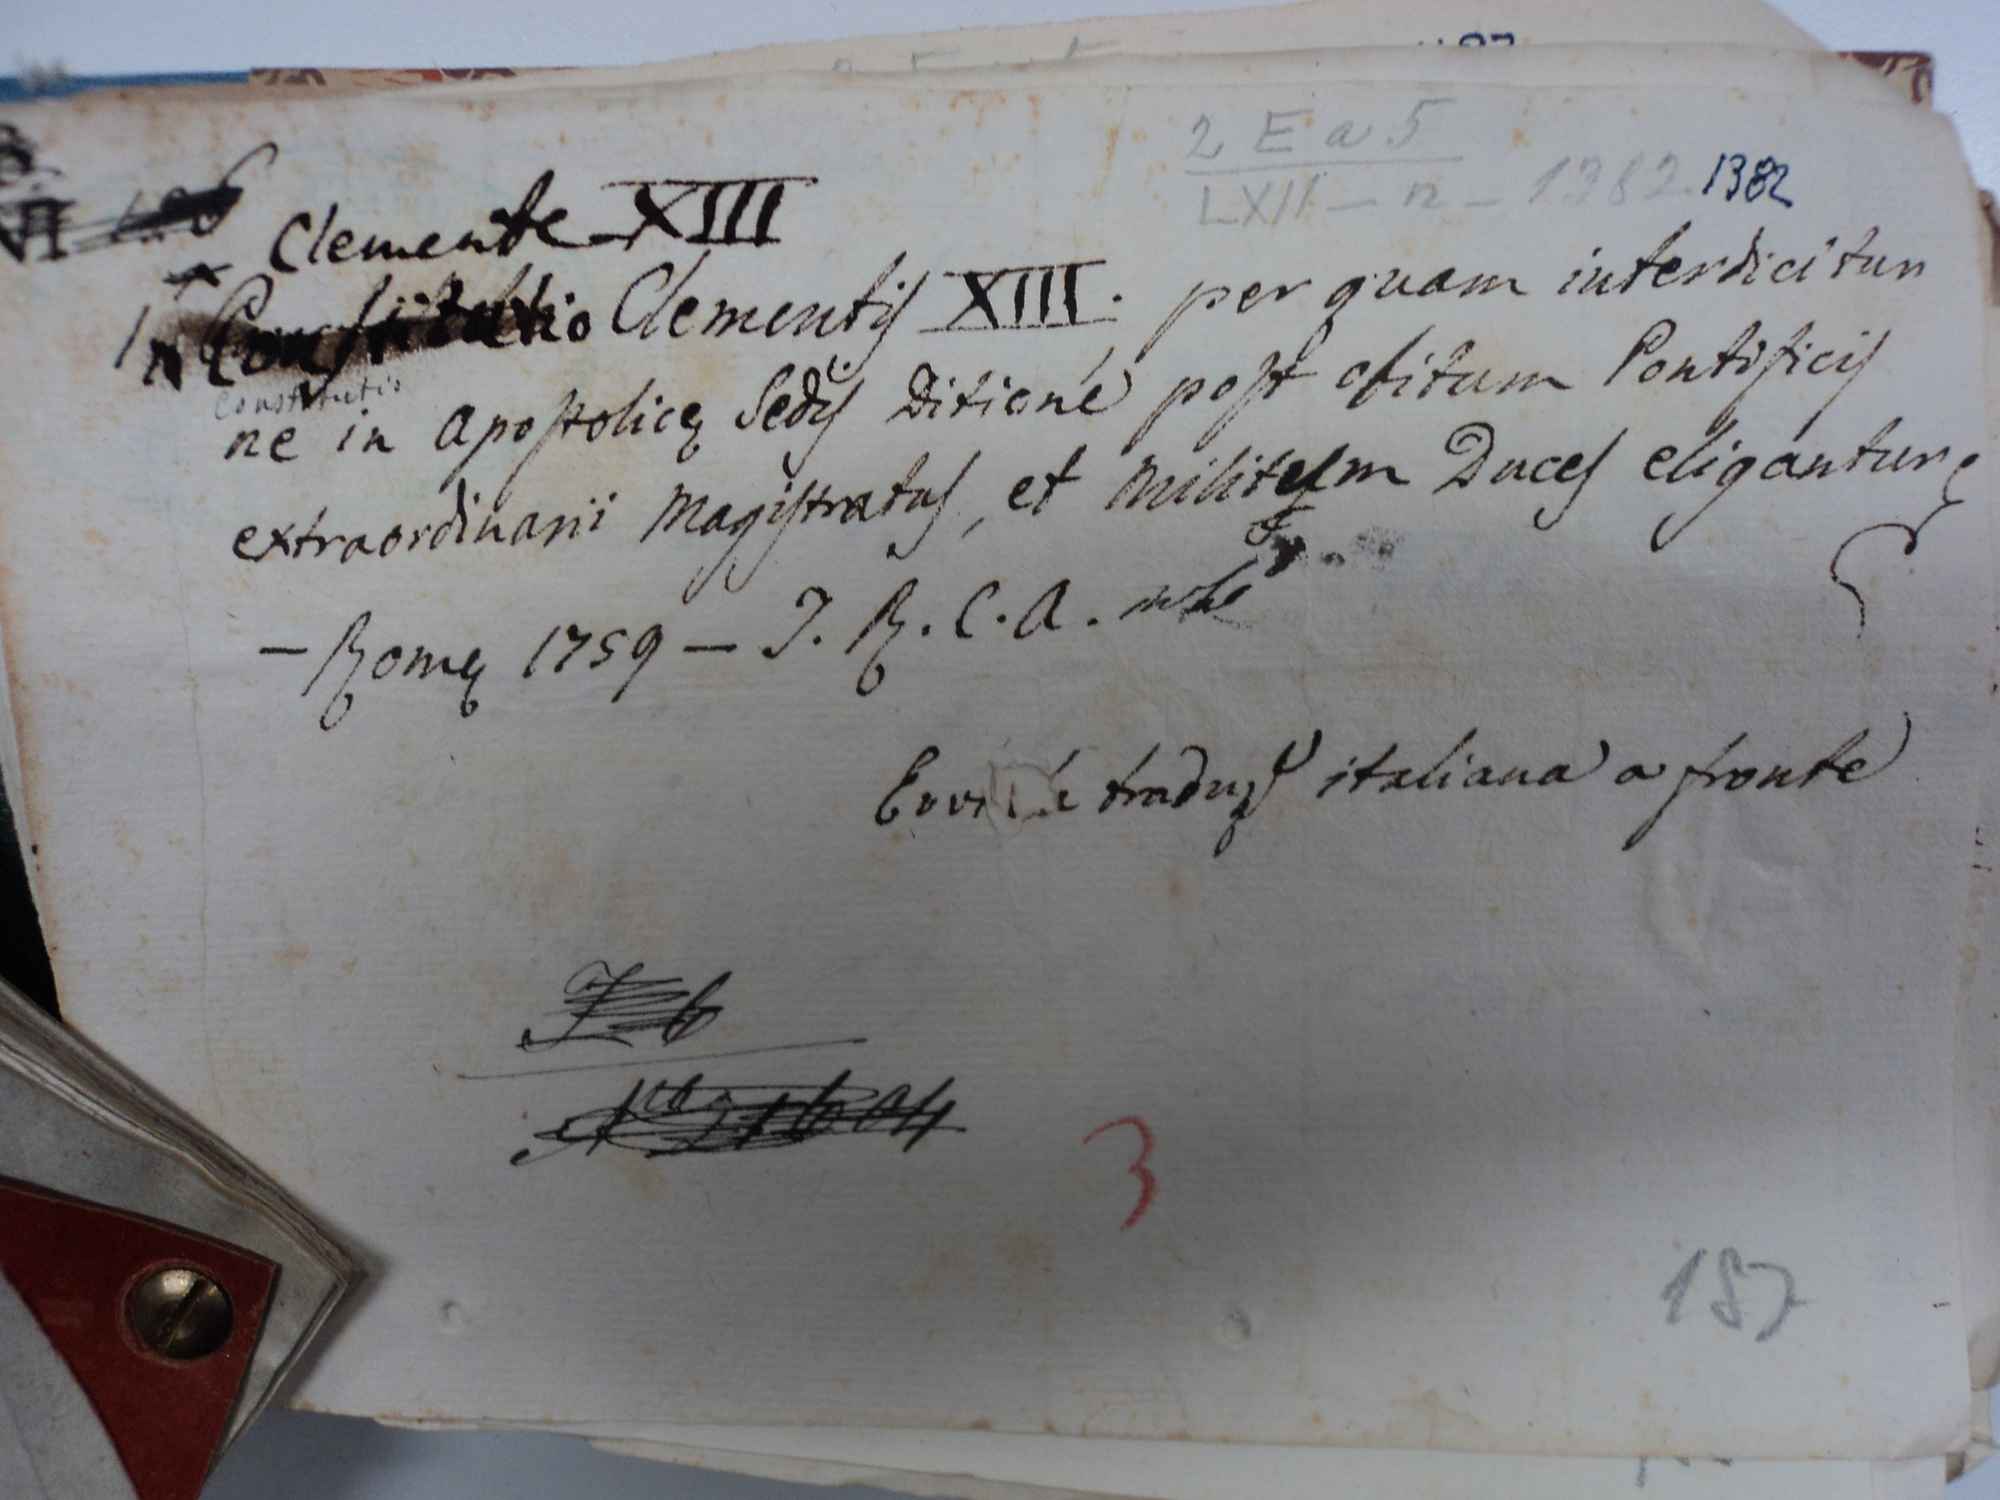 2 E a 5
LXII - n - 1382 1382
Clemente XIII
Constitutio Clementis XIII. per quam interdicitur
Constitutio
ne in Apostolicę Sedis Ditione post obitum Pontificis
extraordinarii Magistratus, et Militum Duces eligantur
- Romę 1759 - T. R. C. A.
Evvi è traduz italiana a fronte
3
187